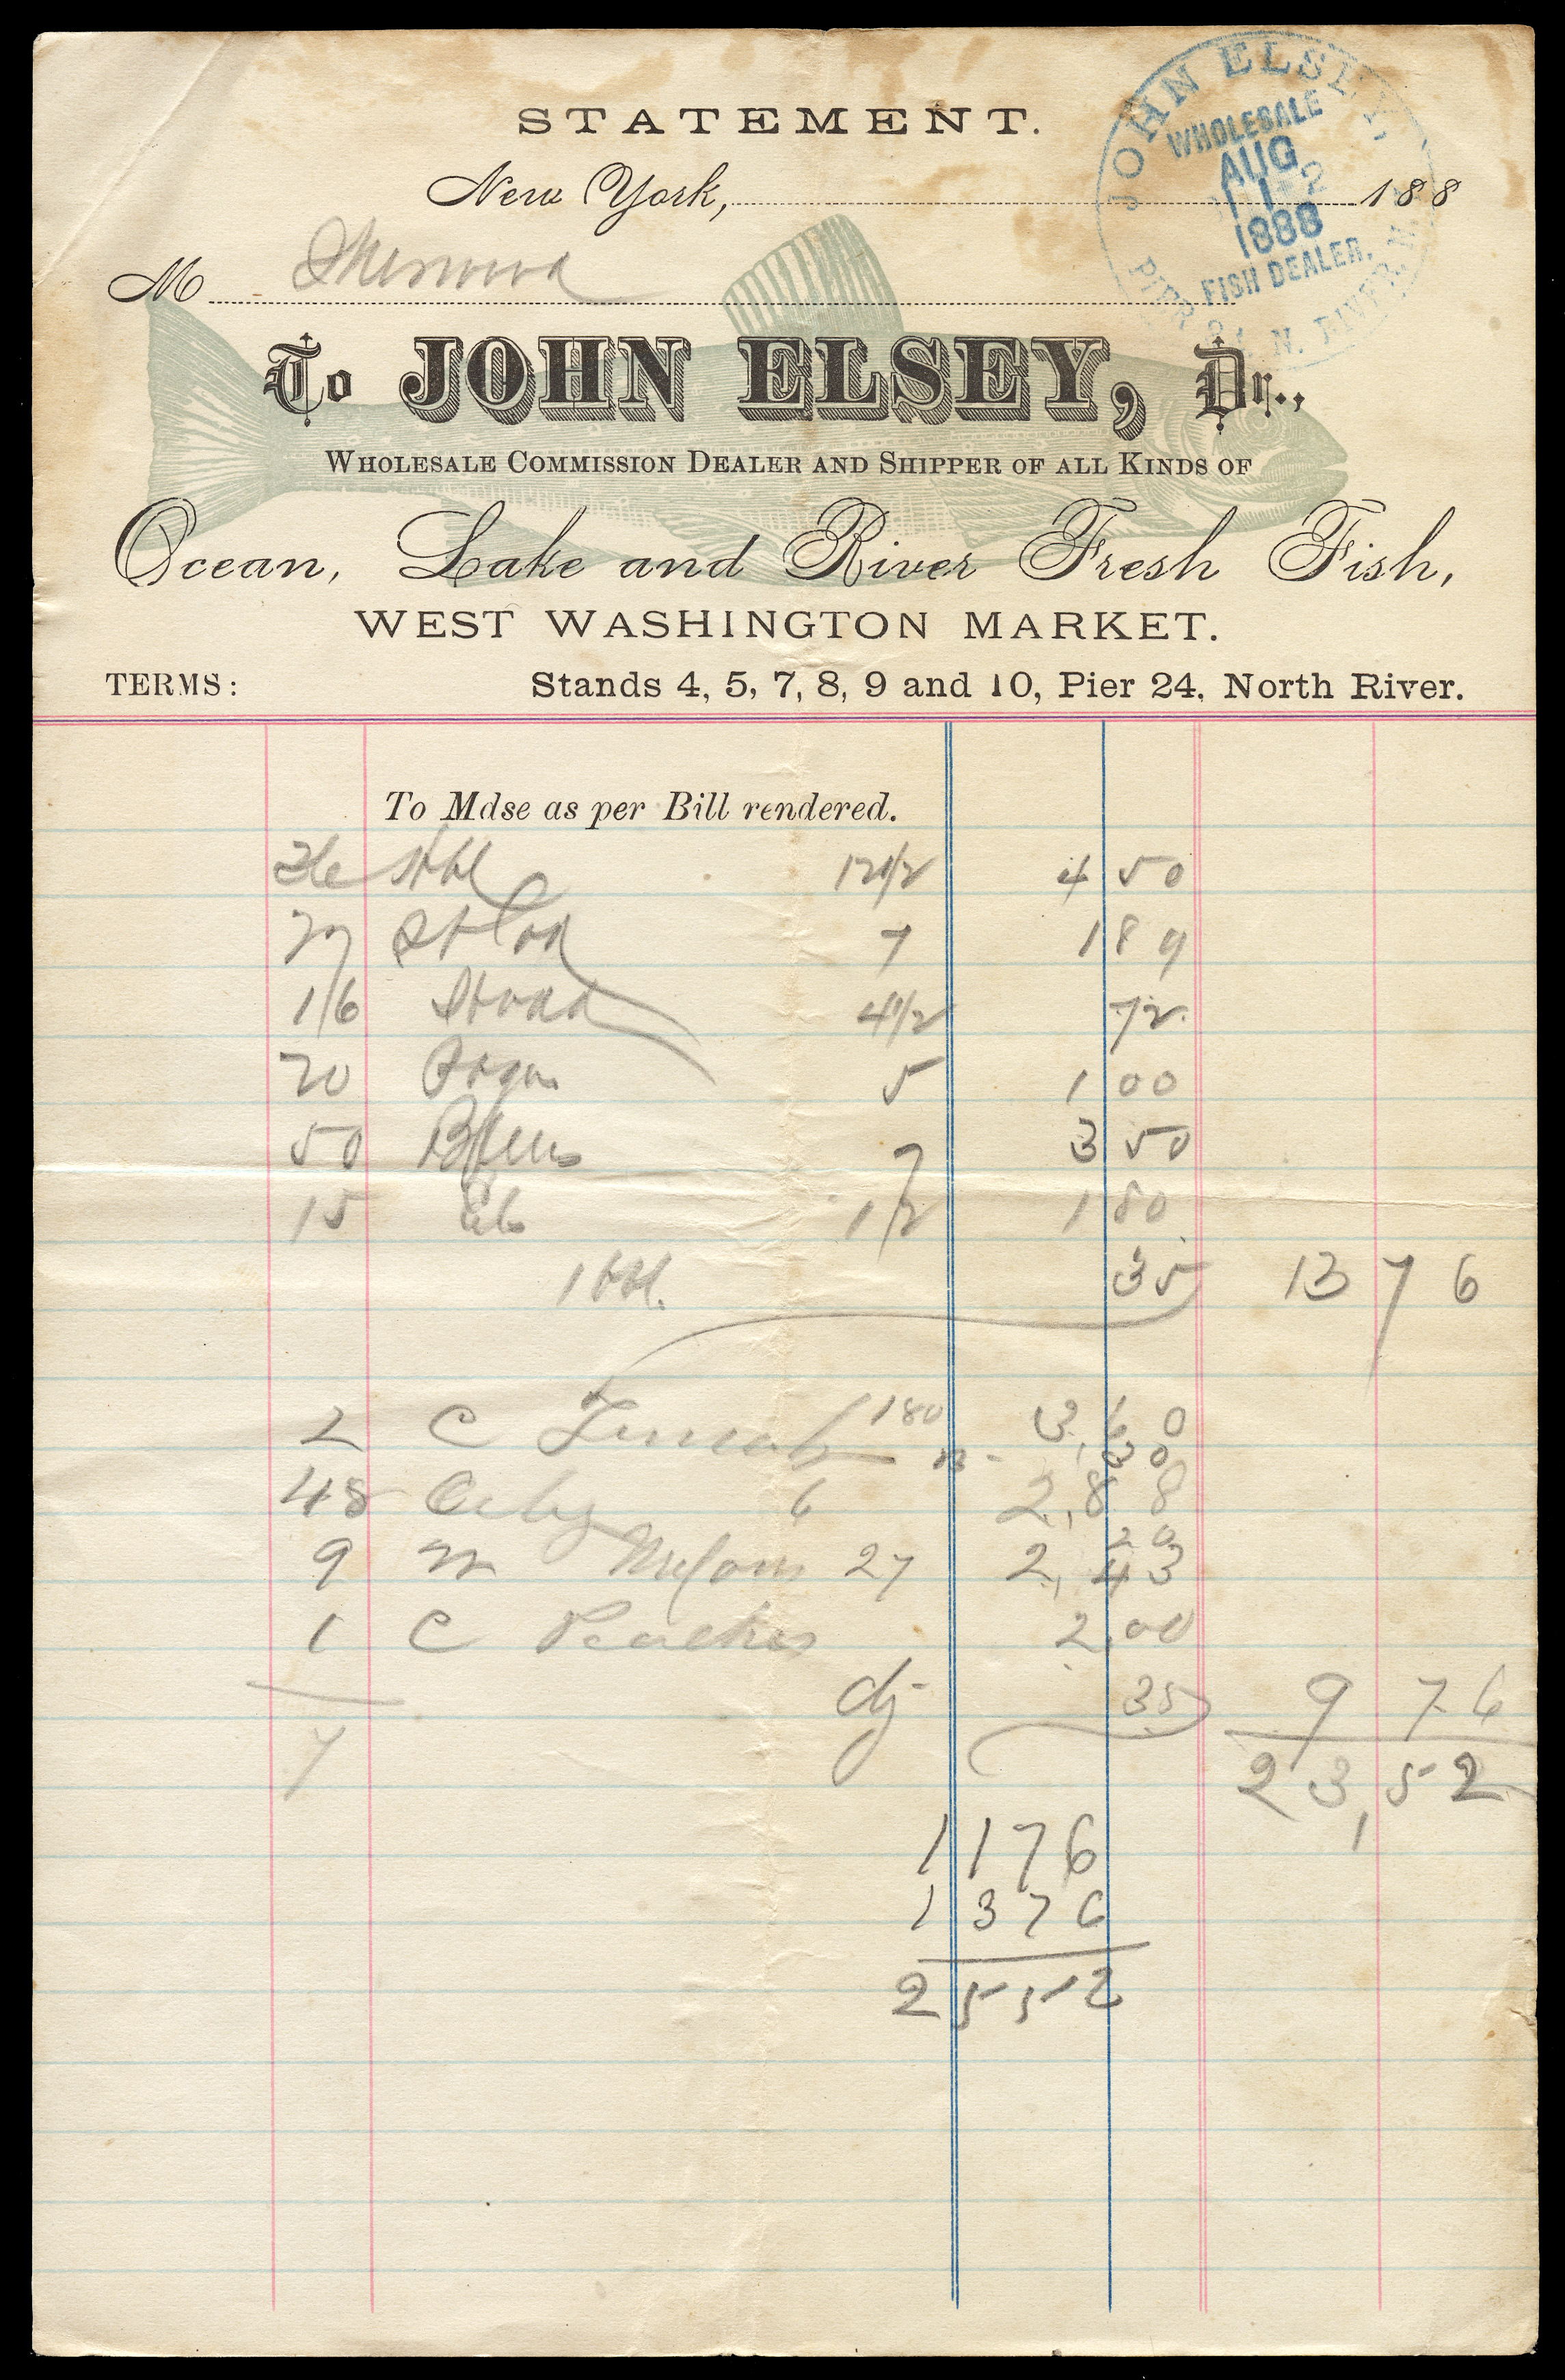 STATEMENT.
JOHN ELSEY,
WHOLESALE
AUG
1888
FISH DEALER,
PIER N. RIVER, N.
New York, 188
M Sherwood
To JOHN ELSEY, Dr.,
WHOLESALE COMMISSION DEALER AND SHIPPER OF ALL KINDS OF
Ocean, Lake and River Fresh Fish,
WEST WASHINGTON MARKET.
TERMS: Stands 4, 5, 7, 8, 9 and 10, Pier 24, North River.
To Mdse as per Bill rendered.
36 12 1/2 4 50
27 St Cod 7 1 89
16 4 1/2 72
20 5 1 00
50 Bfish 7 3 50
15 Eels 12 1 80
1 bbl. 35 13 76
2 C 180 3,60
30
48 6 2,88
20
9 W Melons 27 2,43
1 C Peaches 2.00
35 9 76
7
23,52
1176
1376
2552